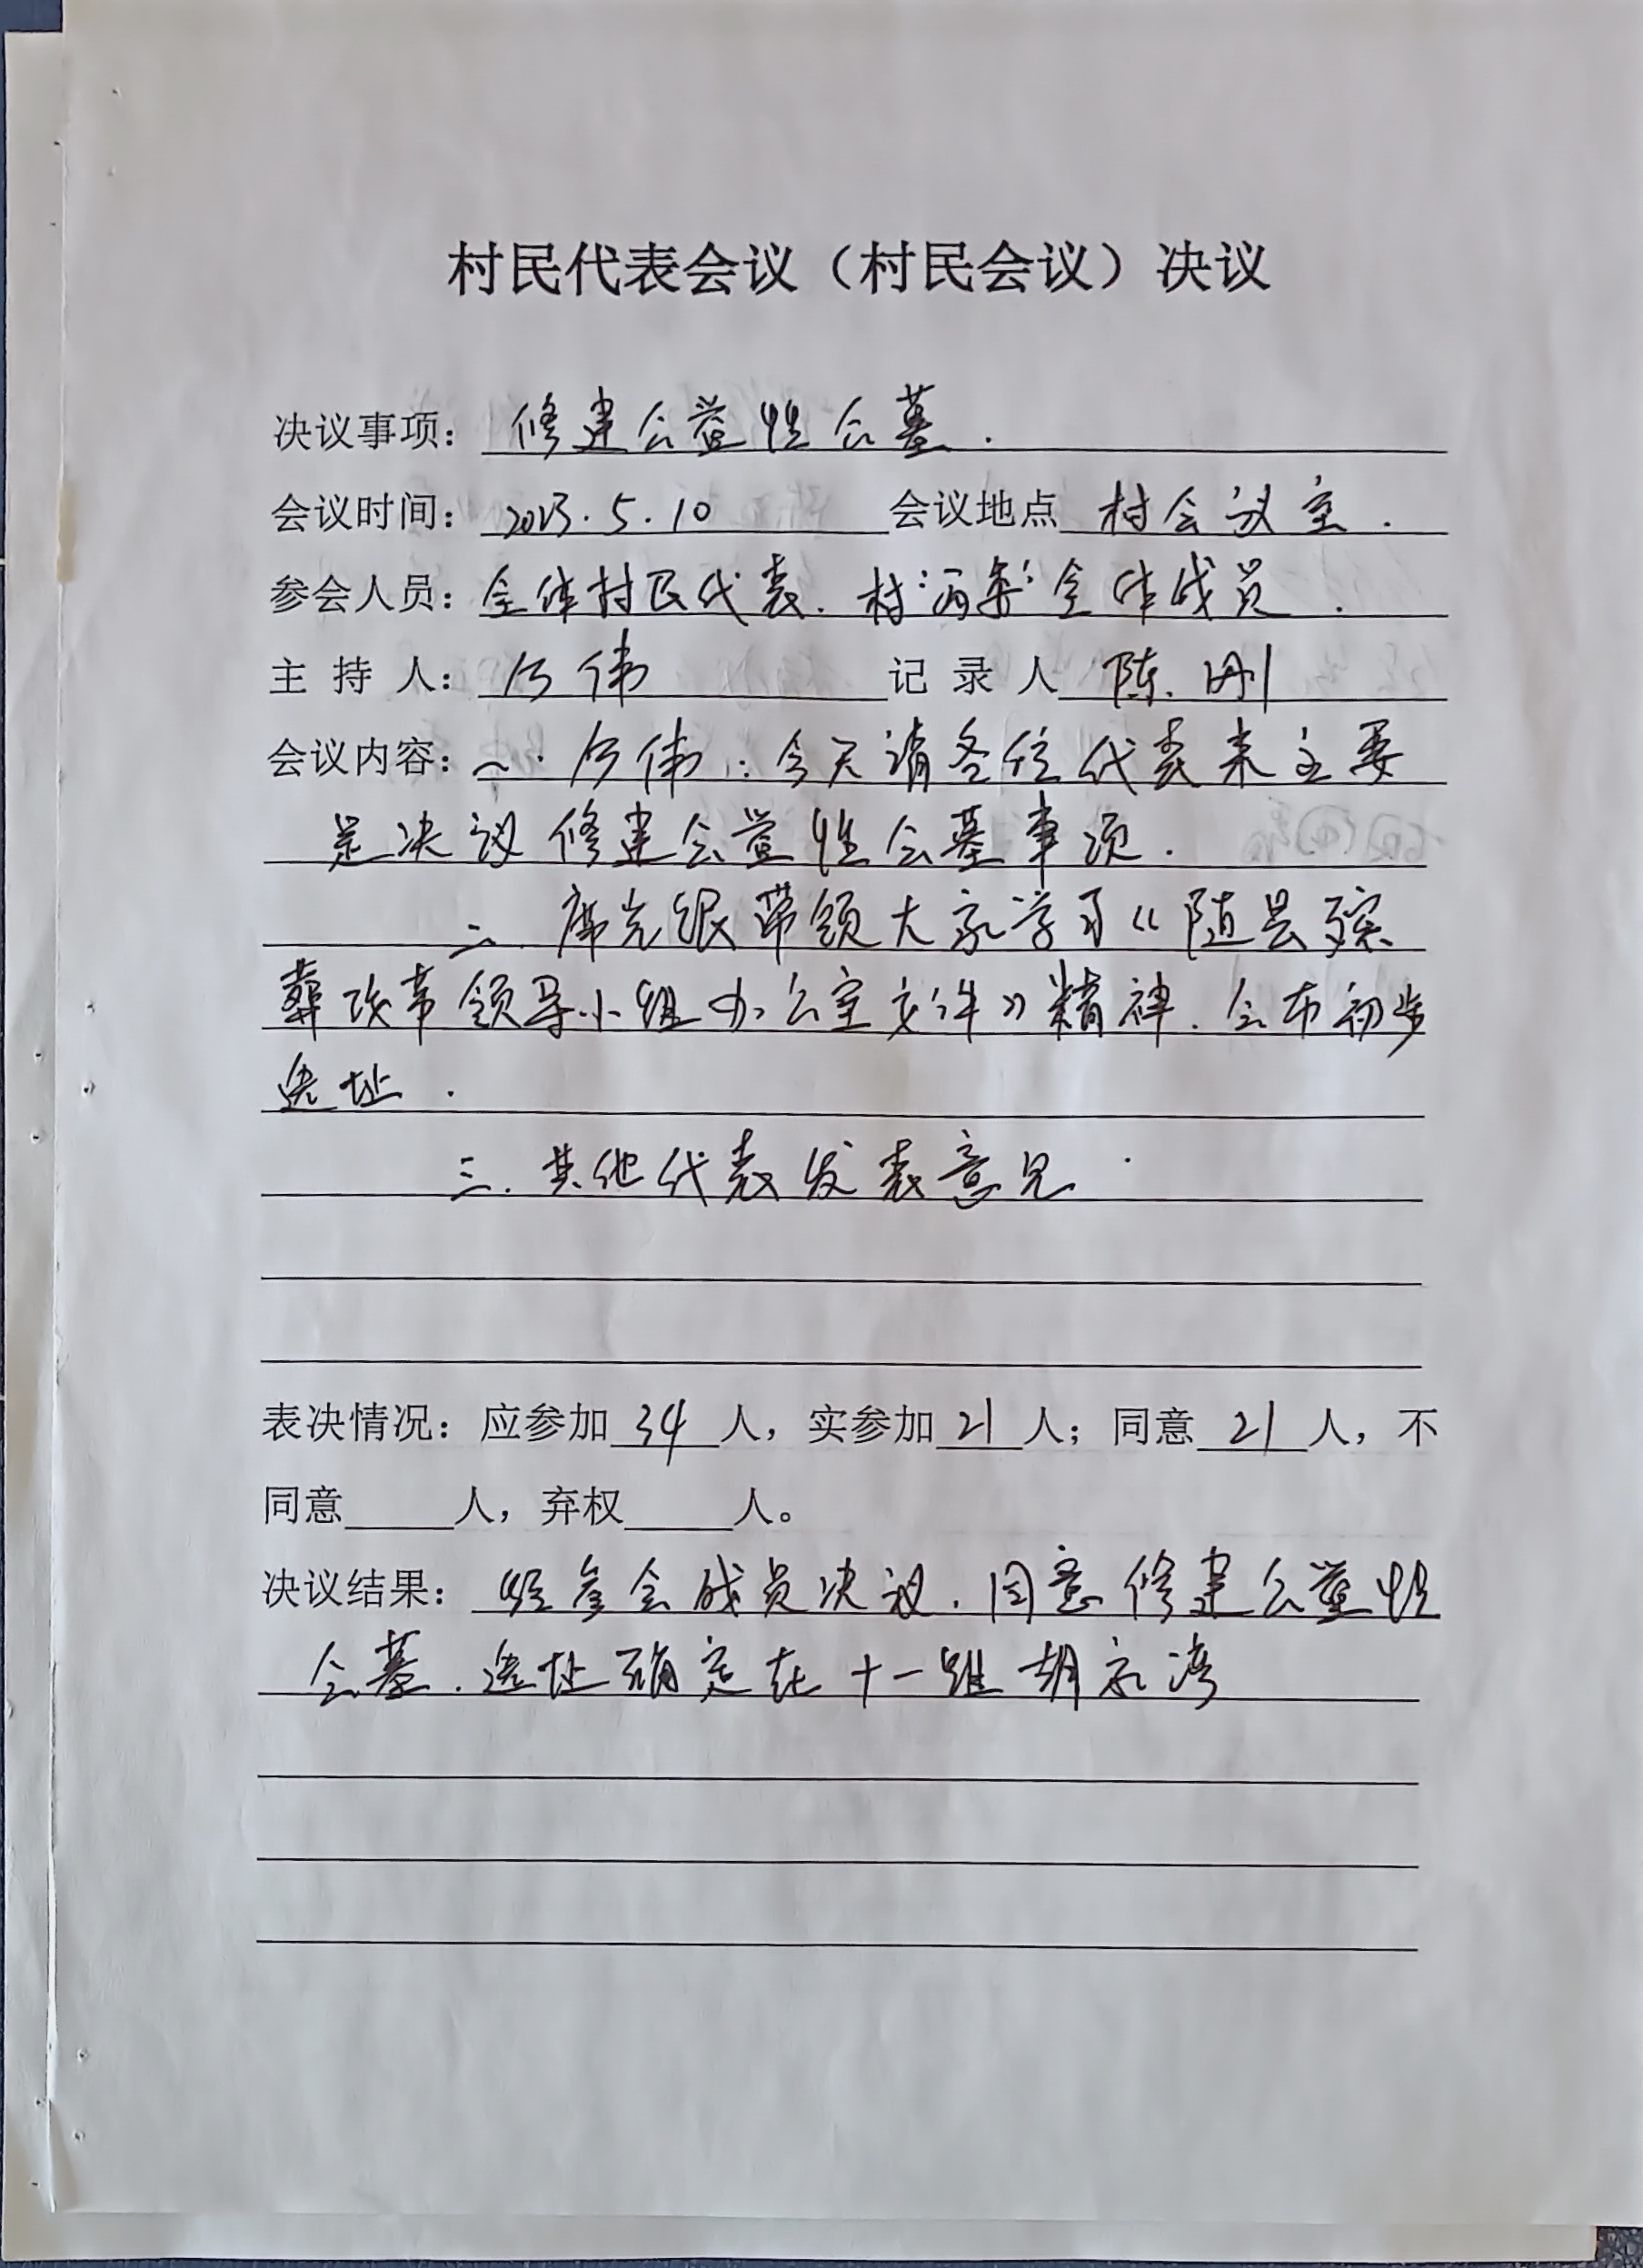 村民代表会议（村民会议）决议
决议事项： 修建公益性公墓.
会议时间： 2023.5.10 会议地点 村会议室.
参会人员： 全体村民代表.村"两委"全体成员.
主 持 人： 何伟 记 录 人 陈刚
会议内容： 一.何伟：今天请各位代表来主要
是决议修建公益性公墓事项.
二.席光银带领大家学习《随县殡
葬改革领导小组办公室文件》精神.公布初步
选址.
三.其他代表发表意见.
表决情况：应参加 34 人，实参加 21 人；同意 21 人，不
同意 人，弃权 人。
决议结果： 经参会成员决议.同意修建公益性
公墓.选址确定在十一组胡家湾